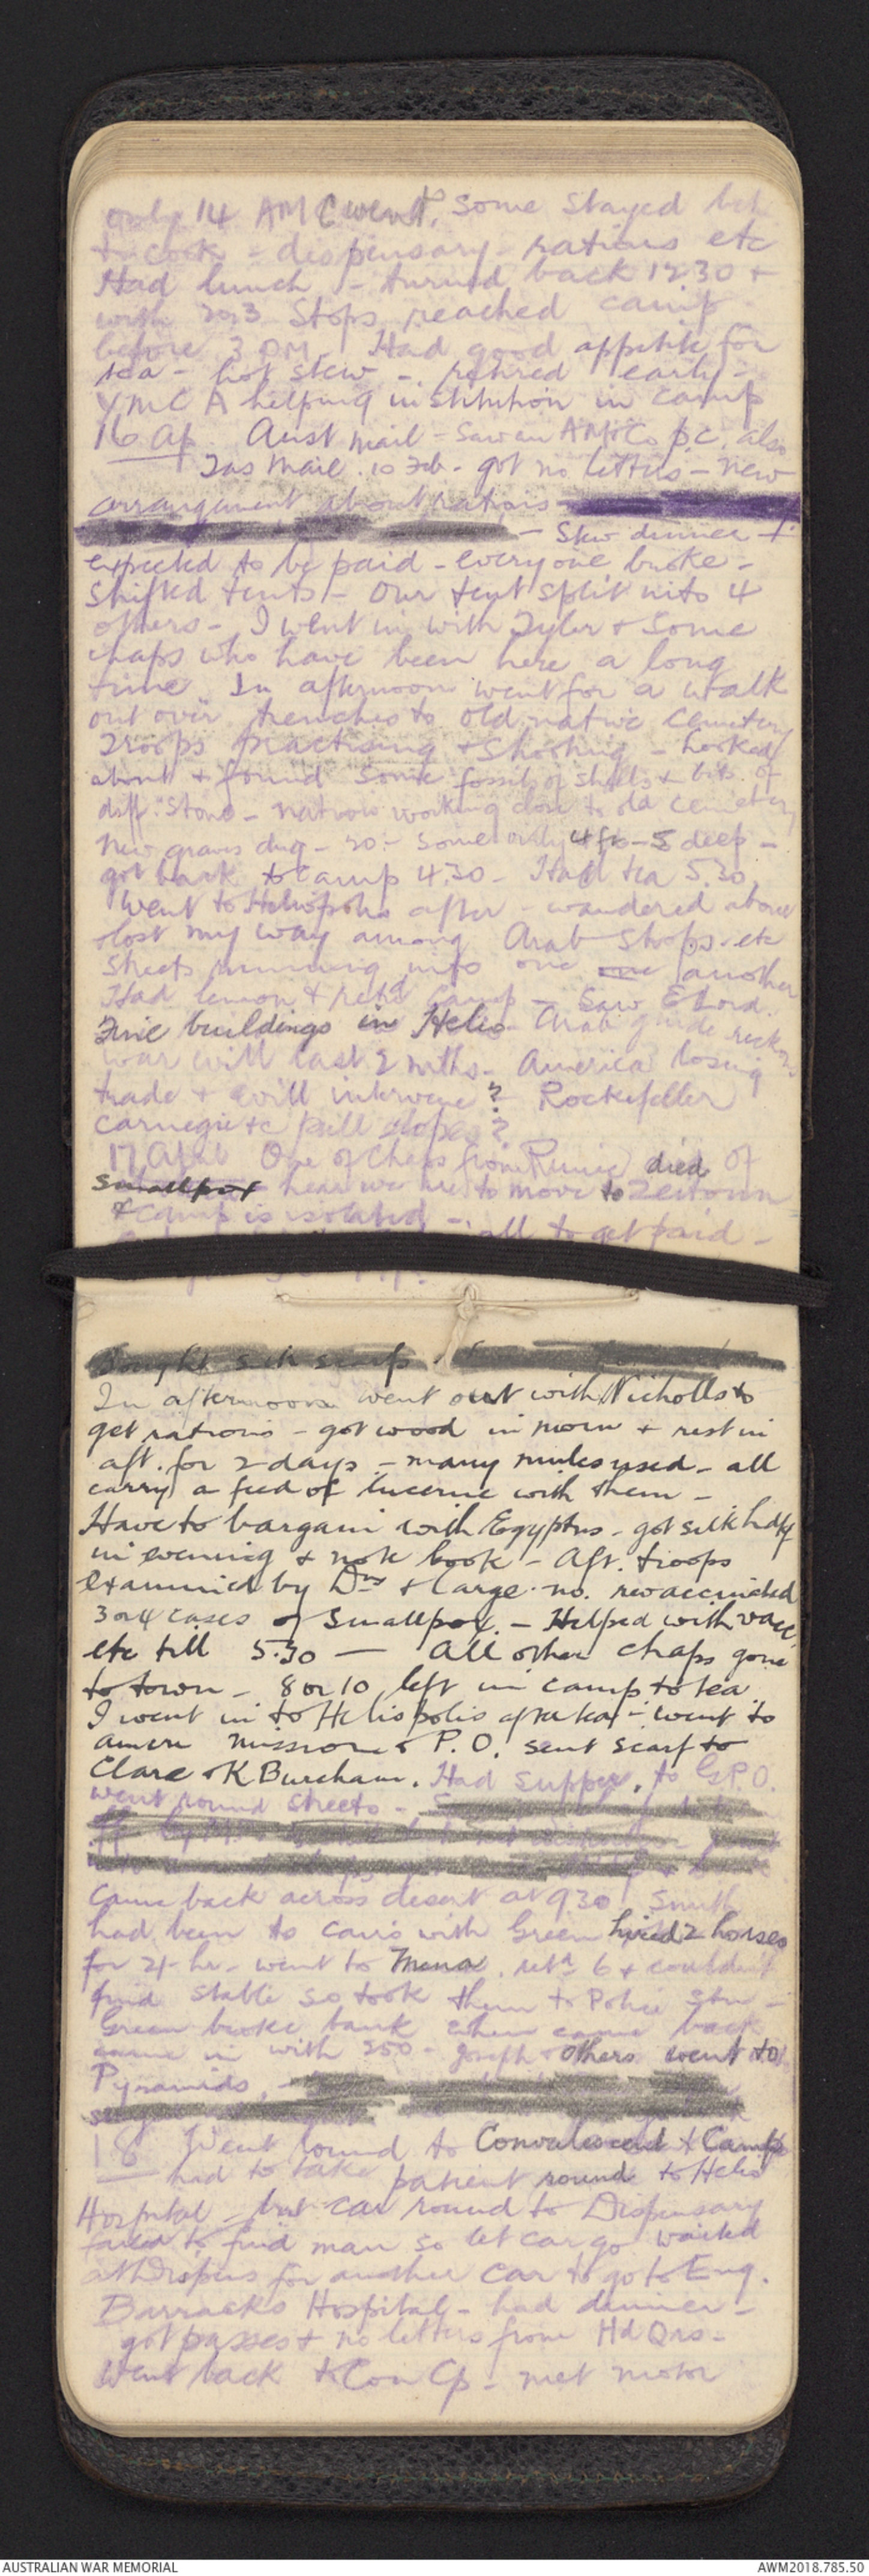 only 14 AMC went, some stayed beh
to cook - dispensary - rations etc
Had lunch - turned back 12.30 +
with 2 or 3 stops reached camp
before 3 PM. Had good appetite for
tea - hot stew - retired early -
YMCA helping institution in camp
16 Ap. Aust mail - Saw an AMCo p.c. also
Tas Mail. 10 Feb. - got no letters - new
arrangement about rations
- Stew dinner +
expected to be paid - everyone broke -
Shifted tents - Our tent split into 4
others - I went in with Tyler + some
chaps who have been here a long
time. In afternoon went for a walk
out over trenches to old native cemetery
Troops practising + shooting - looked
about + found some fossils of shells + bits of
diff. stone - natives working close to old cemetery
new graves dug - 20 - some only 4 ft - 5 deep -
got back to camp 4.30 - Had tea 5.30.
Went to Heliopolis after - wandered about
+ lost my way among Arab shops. etc
Streets running into one another
Had lemon + retd camp - Saw E Lord.
Fine buildings in Helio - Arab guide reck
war will last 2 mths. America losing
trade + will intervene? Rockefeller
Carnegie etc
17 April One of chaps from died of
smallpox hear we are to move to Zeitoun
+ camp is isolated - all to get paid -
Bought silk scarf
In afternoon went out with Nicholls to
get rations - got wood in morn + rest in
aft. for 2 days - many mules used - all
carry a feed of lucerne with them -
Have to bargain with Egyptns - got silk hdkf
in evening + note book - Aft. troops
examined by Drs + large no. revaccinated
3 or 4 cases of smallpox. - Helped with vacc
etc till 5.30 - All other chaps gone
to town - 8 or 10 left in camp to tea
I went in to Heliopolis after tea - went to
Amern mission + P.O. sent scarf to
Clare + K Burcham. Had supper, to G.P.O.
went round streets -
Came back across desert at 9.30. Smith
had been to Cairo with Green hired 2 horses
for 24 hr - went to Mena. retd 6 + couldnt
find stable so took them to Police Stn -
Green broke bank when came back
came in with 250 - + others went to
Pyramids. -
18 Went round to Convalescent + Camp
had to take patient round to Helio
Hospital - but car round to Dispensary
failed to find man so let car go waited
at Dispens for another car to go to Eng.
Barracks Hospital - had dinner -
got passes + no letters from Hd Qrs -
Went back to Con Cp - met motor
AUSTRALIAN WAR MEMORIAL
AWM2018.785.50